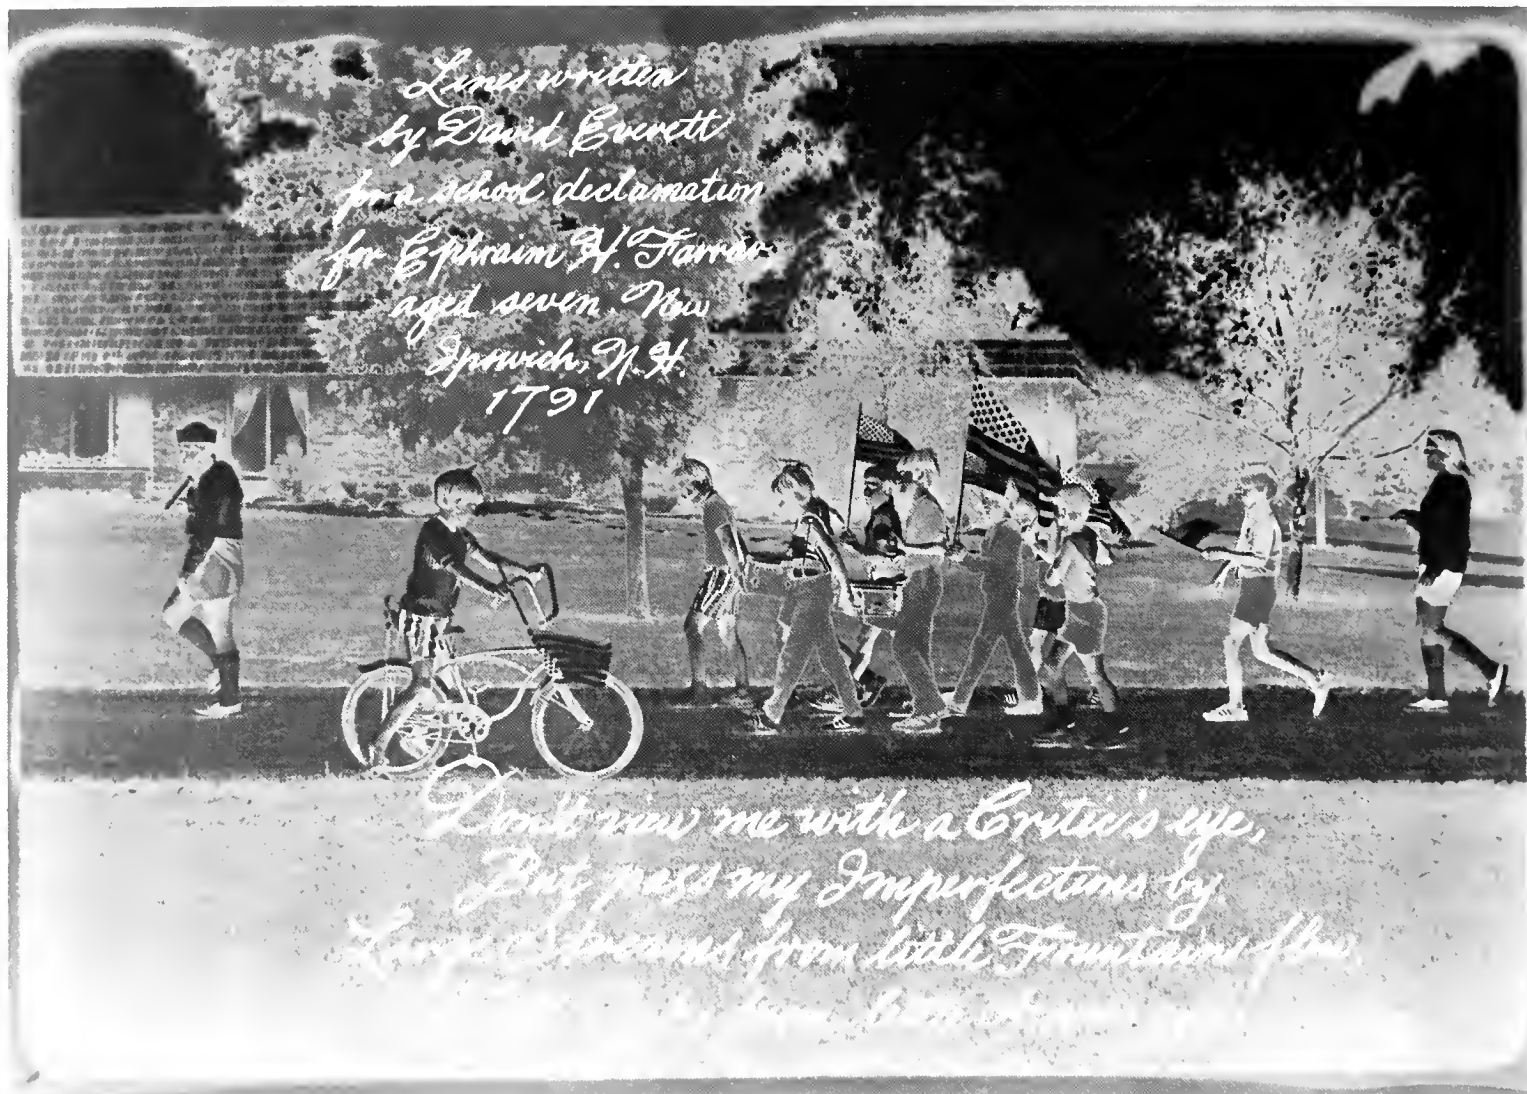 Lines written
by David Everett
for a school declamation
for Ephraim H. Farrar
aged seven. New
Ipswich, N.H.
1791
Don't view me with a Critic's eye,
But pass my Imperfections by
Large Streams from little Fountains flow,